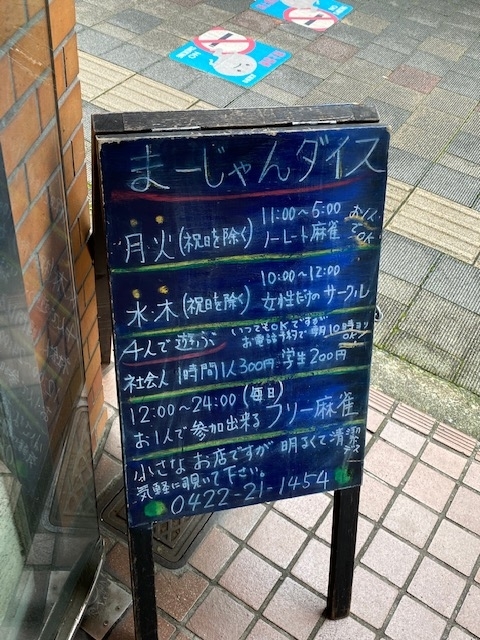 まーじゃんダイス
11:00～5:00
月・火(祝日を除く)ノーレート麻雀
お1人でOK
10:00～12:00
水・木(祝日を除く)女性だけのサークル
4人で遊ぶ いつでもOKですが
お電話予約で朝10時ヨリOK!
社会人1時間1人300円・学生200円
12:00～24:00(毎日)
お1人で参加出来るフリー麻雀
小さなお店ですが明るくて清潔デス
気軽に覗いて下さい。
0422-21-1454